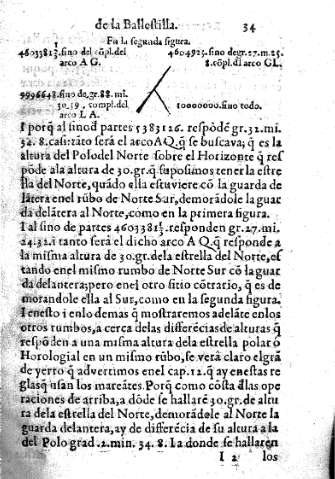 de la Ballestilla. 34
En la segunda figura.
4603381⅗. sino del cõpl. del arco A G.
4604925. sino de gr. 27. m. 25. 8. cõpl. dl arco GL.
9996648. sino de gr. 88. mi. 30. 59, compl. del arco L A.
10000000. sino todo.
I porq̃ al sino d̃ partes 5383126. respõdẽ gr. 32. mi.
52. 8. casi: tãto será el arco A Q. q̃ se buscava; q̃ es la
altura del Polo del Norte sobre el Horizonte q̃ res
põde a la altura de 30. gr. q̃ suposimos tener la estre
lla del Norte, quãdo ella estuviere cõ la guarda de
lãtera enel rũbo de Norte Sur, demorãdole la guar
da delãtera al Norte, como en la primera figura.
I al sino de partes 4603381⅗. responden gr. 27. mi.
24. 32. i tanto será el dicho arco A Q. q̃ responde a
la misma altura de 30. gr. de la estrella del Norte, es
tando enel mismo rumbo de Norte Sur cõ la guar
da delantera; pero enel otro sitio cõtrario, q̃ es de
morandole ella al Sur, como en la segunda figura.
I enesto i enlo demas q̃ mostraremos adelãte enlos
otros rumbos, a cerca de las differẽcias de alturas q̃
respõden a una misma altura dela estrella polar o
Horologial en un mismo rũbo, se verá claro el grã
de yerro q̃ advertimos enel cap. 12. q̃ ay enestas re
glas q̃ usan los mareãtes. Porq̃ como cõsta d̃ las ope
raciones de arriba, a dõde se hallarẽ 30. gr. de altu
ra dela estrella del Norte, demorãdole al Norte la
guarda delantera, ay de differẽcia de su altura a la
del Polo grad. 2. min. 34. 8. I a donde se hallaren
I 2 los